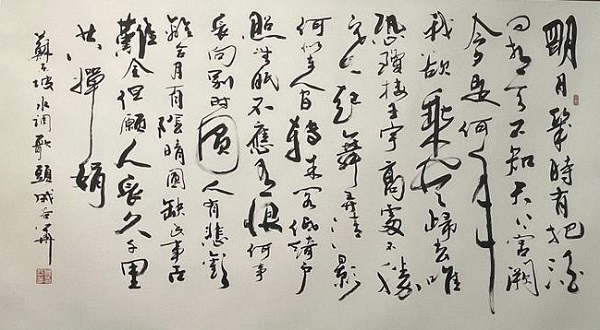 明月幾時有把酒
問青天不知天上宮闕
今夕是何年
我欲乘風歸去唯
恐瓊樓玉宇高處不勝
寒起舞弄清影
何似在人間轉朱閣低綺戶
照無眠不應有恨何事
長向別時圓人有悲歡
離合月有陰晴圓缺此事古
難全但願人長久千里
共嬋娟
蘇東坡水調歌頭